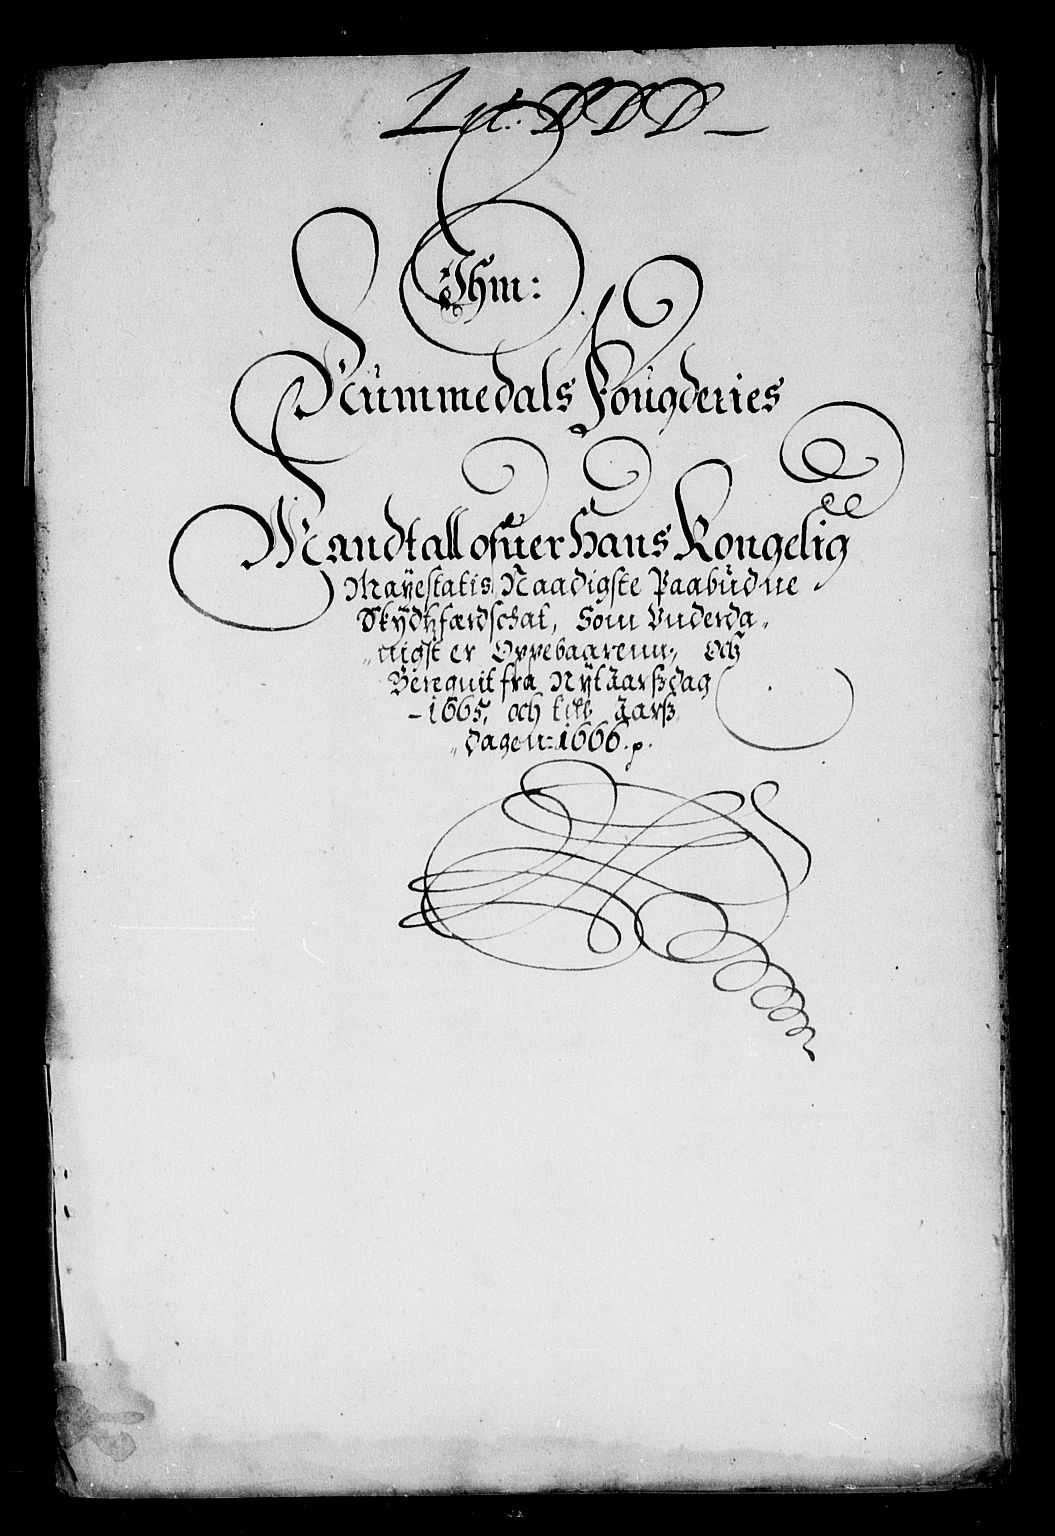 Lit: DDD
Ihm:
Nummedals Fougderies
Mandtall ofuer Hans Kongelig
Mayestatis Naadigste Paabudne
Skydtzferdschat, Som Vnderda„
„nigst er Oppebaarenn, och
Beregnit fra Nyt Aarß dag
– 1665, och till Aarß
„dagen: 1666. p.